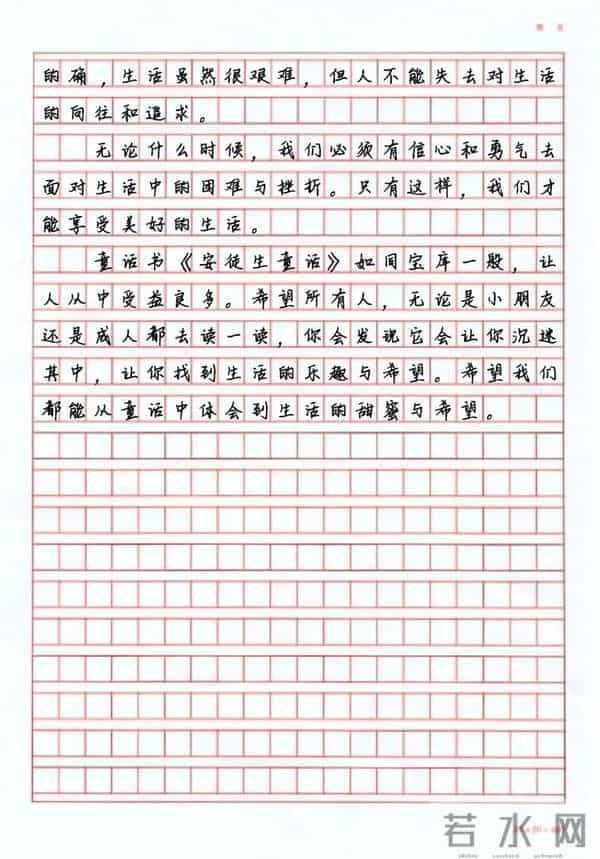 的确，生活虽然很艰难，但人不能失去对生活
的向往和追求。
无论什么时候，我们必须有信心和勇气去
面对生活中的困难与挫折。只有这样，我们才
能享受美好的生活。
童话书《安徒生童话》如同宝库一般，让
人从中受益良多。希望所有人，无论是小朋友
还是成人都去读一读，你会发现它会让你沉迷
其中，让你找到生活的乐趣与希望。希望我们
都能从童话中体会到生活的甜蜜与希望。
若水网